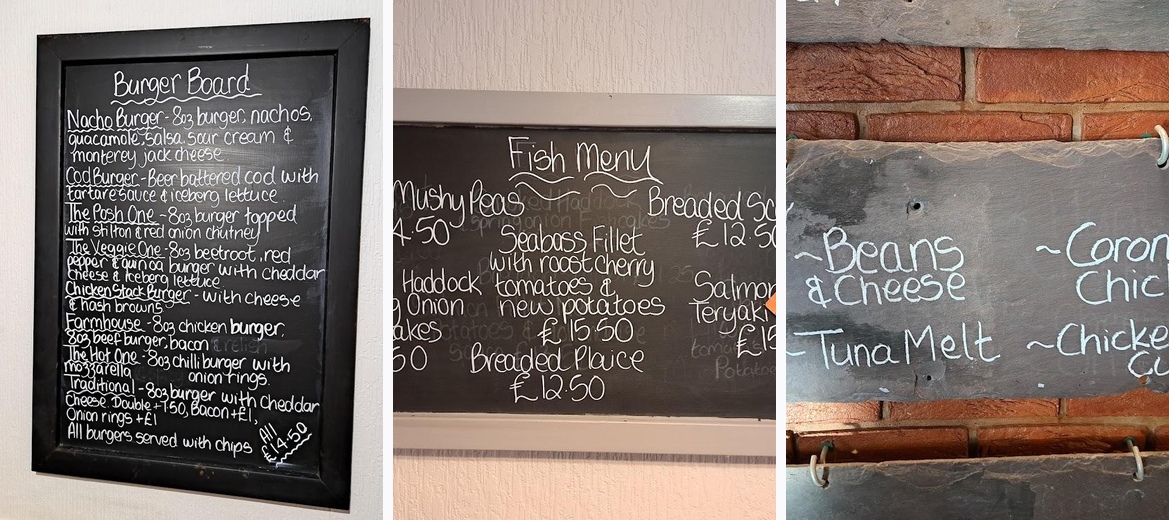 Burger Board
Nacho Burger - 8oz burger, nachos,
guacamole, salsa, sour cream &
monterey jack cheese
Cod Burger - Beer battered cod with
tartare sauce & iceberg lettuce
The Posh One - 8oz burger topped
with stilton & red onion chutney
The Veggie One - 8oz beetroot, red
pepper & quinoa burger with cheddar
cheese & iceberg lettuce
Chicken Stack Burger - with cheese
& hash browns
Farmhouse - 8oz chicken burger,
8oz beef burger, bacon & relish
The Hot One - 8oz chilli burger with
mozzarella onion rings.
Traditional - 8oz burger with cheddar
Cheese. Double + 1.50, Bacon + £1,
Onion rings + £1
All burgers served with chips
All
£14.50
Fish Menu
Mushy Peas
4.50
Haddock
g Onion
akes
50
Seabass Fillet
with roast cherry
tomatoes &
new potatoes
£15.50
Breaded Plaice
£12.50
Breaded Sc
£12.50
Salmon
Teryaki
£15
~Beans
& Cheese
~Tuna Melt
~Coron
Chic
~Chicke
Cu